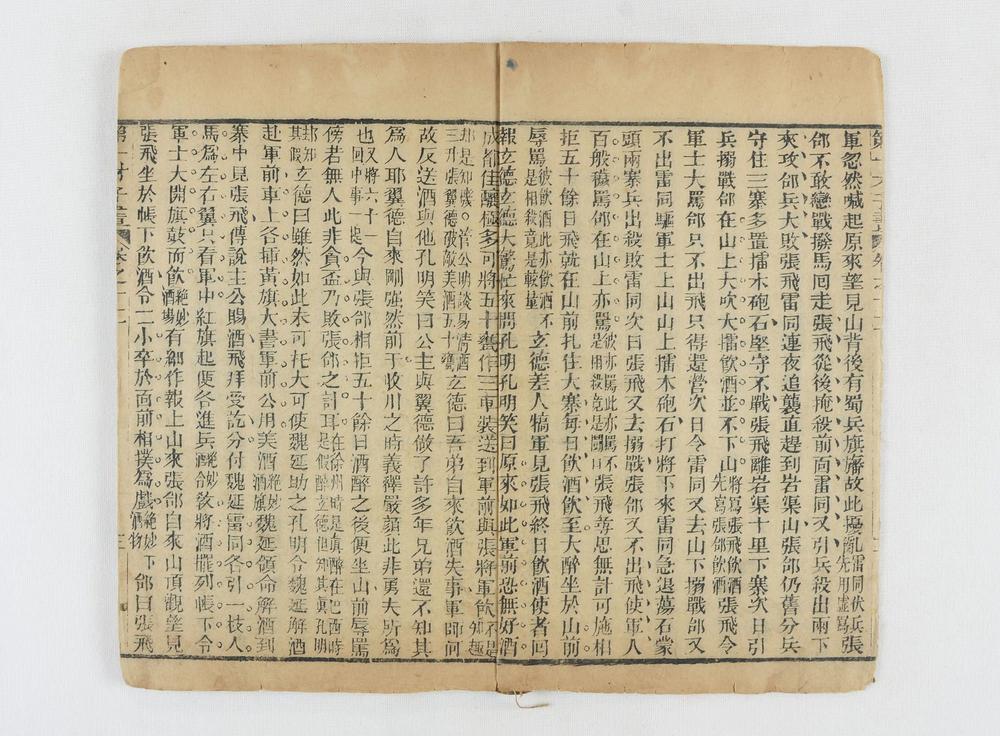 軍忽然喊起原來望見山背後有蜀兵旗旛故此擾亂雷同伏兵先用虛寫張
郃不敢戀戰撥馬囘走張飛從後掩殺前面雷同又引兵殺出兩下
夾攻郃兵大敗張飛雷同連夜追襲直趕到岩渠山張郃仍舊分兵
守住三寨多置擂木砲石堅守不戰張飛離岩渠十里下寨次日引
兵搦戰郃在山上大吹大擂飲酒並不下山將寫張飛飲酒先寫張郃飲酒張飛令
軍士大罵郃只不出飛只得還營次日令雷同又去山下搦戰郃又
不出雷同驅軍士上山山上擂木砲石打將下來雷同急退蕩石蒙
頭兩寨兵出殺敗雷同次日張飛又去搦戰張郃又不出飛使軍人
百般穢罵郃在山上亦罵彼亦罵此亦罵不是相殺竟是鬭口張飛尋思無計可施相
拒五十餘日飛就在山前扎住大寨每日飲酒飲至大醉坐於山前
辱罵彼飲酒此亦飲酒不是相殺竟是較量玄德差人犒軍見張飛終日飲酒使者囘
報玄德玄德大驚忙來問孔明孔明笑曰原來如此軍前恐無好酒
成都佳釀極多可將五十甕作三車裝送到軍前與張將軍飲不是知趣
却是知機○管公明談易清酒三升張翼德破敵美酒五十甕玄德曰吾弟自來飲酒失事軍師何
故反送酒與他孔明笑曰公主與翼德做了許多年兄弟還不知其
為人耶翼德自來剛強然前于收川之時義釋嚴顏此非勇夫所為
也又將六十一囘中事一提今與張郃相拒五十餘日酒醉之後便坐山前辱罵
傍若無人此非貪盃乃敗張郃之計耳在徐州時是真醉在巴西時是假醉玄德但知其真孔明
却知其假玄德曰雖然如此未可托大可使魏延助之孔明令魏延解酒
赴軍前車上各插黃旗大書軍前公用美酒絕妙酒旗魏延領命解酒到
寨中見張飛傳說主公賜酒飛拜受訖分付魏延雷同各引一枝人
馬為左右翼只看軍中紅旗起便各進兵絕妙酒令教將酒擺列帳下令
軍士大開旗鼓而飲絕妙酒場有細作報上山來張郃自來山頂觀望見
張飛坐於帳下飲酒令二小卒於面前相撲為戲絕妙下酒物郃曰張飛